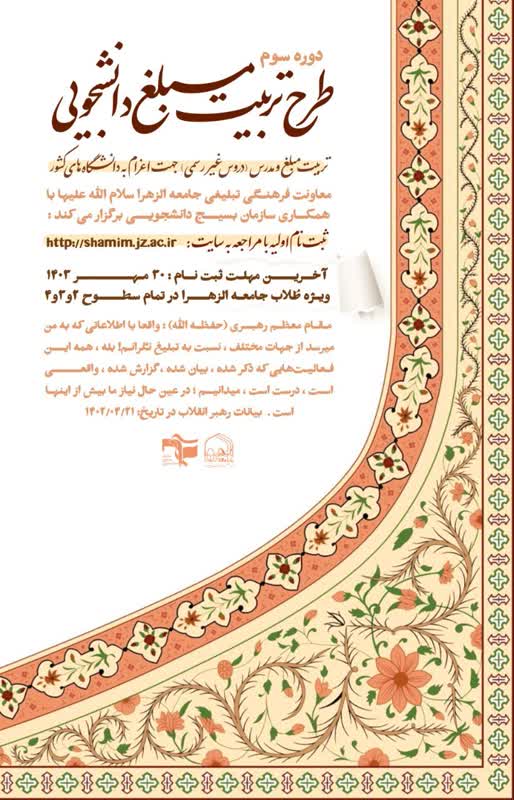 دوره سوم
طرح تربیت مبلغ دانشجویی
تربیت مبلغ و مدرس (دروس غیر رسمی) جهت اعزام به دانشگاه های کشور
معاونت فرهنگی تبلیغی جامعه الزهرا سلام الله علیها با
همکاری سازمان بسیج دانشجویی برگزار می کند :
ثبت نام اولیه با مراجعه به سایت : http://shamim.jz.ac.ir
آخرین مهلت ثبت نام : ۳۰ مهر ۱۴۰۳
ویژه طلاب جامعه الزهرا در تمام سطوح ۲و۳و۴
مقام معظم رهبری (حفظه الله) : واقعا با اطلاعاتی که به من
میرسد از جهات مختلف ، نسبت به تبلیغ نگرانم! بله ، همه این
فعالیت‌هایی که ذکر شده ، بیان شده ، گزارش شده ، واقعی
است ، درست است ، میدانیم ؛ در عین حال نیاز ما بیش از اینها
است . بیانات رهبر انقلاب در تاریخ: ۱۴۰۲/۰۴/۲۱